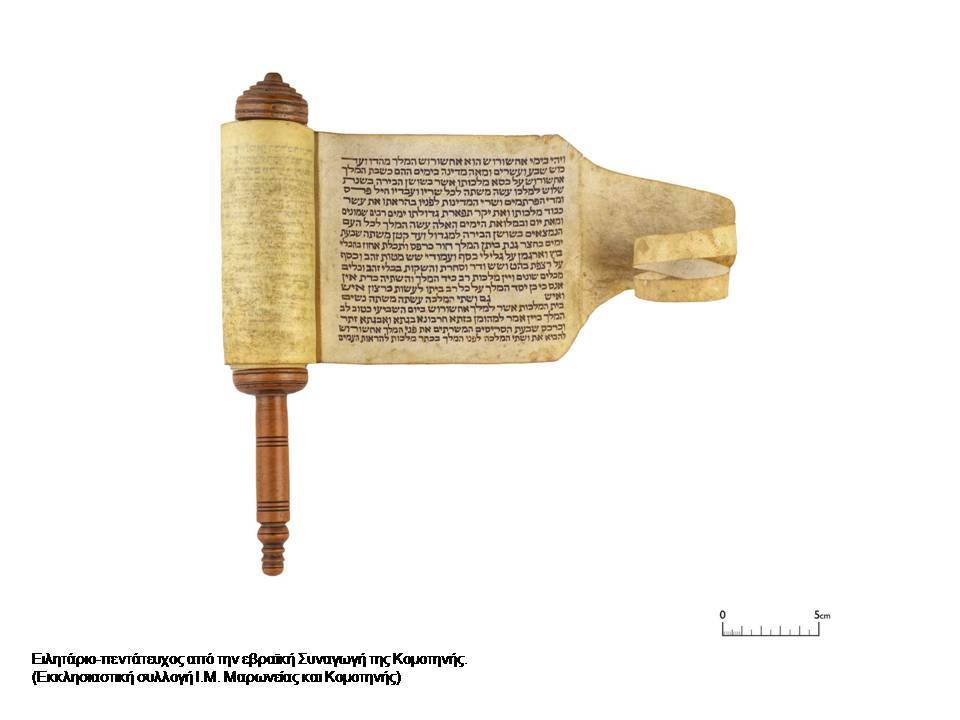 ויהי בימי אחשורוש הוא אחשורוש המלך מהדו ועד
כוש שבע ועשרים ומאה מדינה בימים ההם כשבת המלך
אחשורוש על כסא מלכותו אשר בשושן הבירה בשנת
שלוש למלכו עשה משתה לכל שריו ועבדיו חיל פרס
ומדי הפרתמים ושרי המדינות לפניו בהראתו את עשר
כבוד מלכותו ואת יקר תפארת גדולתו ימים רבים שמונים
ומאת יום ובמלואת הימים האלה עשה המלך לכל העם
הנמצאים בשושן הבירה למגדול ועד קטן משתה שבעת
ימים בחצר גנת ביתן המלך חור כרפס ותכלת אחוז בחבלי
בוץ וארגמן על גלילי כסף ועמודי שש מטות זהב וכסף
על רצפת בהט ושש ודר וסחרת והשקות בכלי זהב וכלים
מכלים שונים ויין מלכות רב כיד המלך והשתיה כדת אין
אנס כי כן יסד המלך על כל רב ביתו לעשות כרצון איש
ואיש גם ושתי המלכה עשתה משתה נשים
בית המלכות אשר למלך אחשורוש ביום השביעי כטוב לב
המלך ביין אמר למהומן בזתא חרבונא בגתא ואבגתא זתר
וכרכס שבעת הסריסים המשרתים את פני המלך אחשורוש
להביא את ושתי המלכה לפני המלך בכתר מלכות להראות העמים
0 5cm
Ειλητάριο-πεντάτευχος από την εβραϊκή Συναγωγή της Κομοτηνής.
(Εκκλησιαστική συλλογή Ι.Μ. Μαρωνείας και Κομοτηνής)